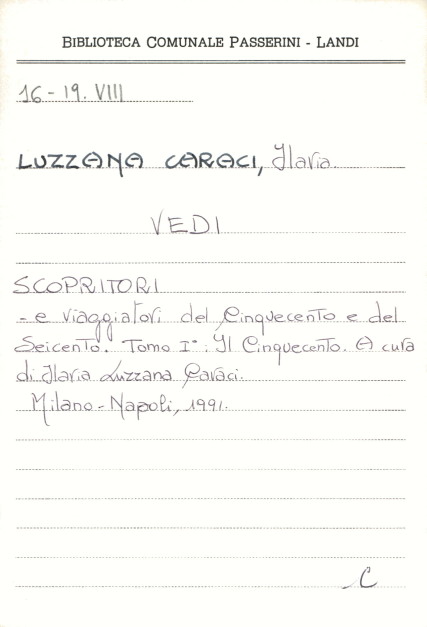 BIBLIOTECA COMUNALE PASSERINI - LANDI
16-19. VIII
LUZZANA CARACI, Ilaria
VEDI
SCOPRITORI
- e viaggiatori del Cinquecento e del
Seicento. Tomo I°: Il Cinquecento. A cura
di Ilaria Luzzana Caraci.
Milano-Napoli, 1991.
C